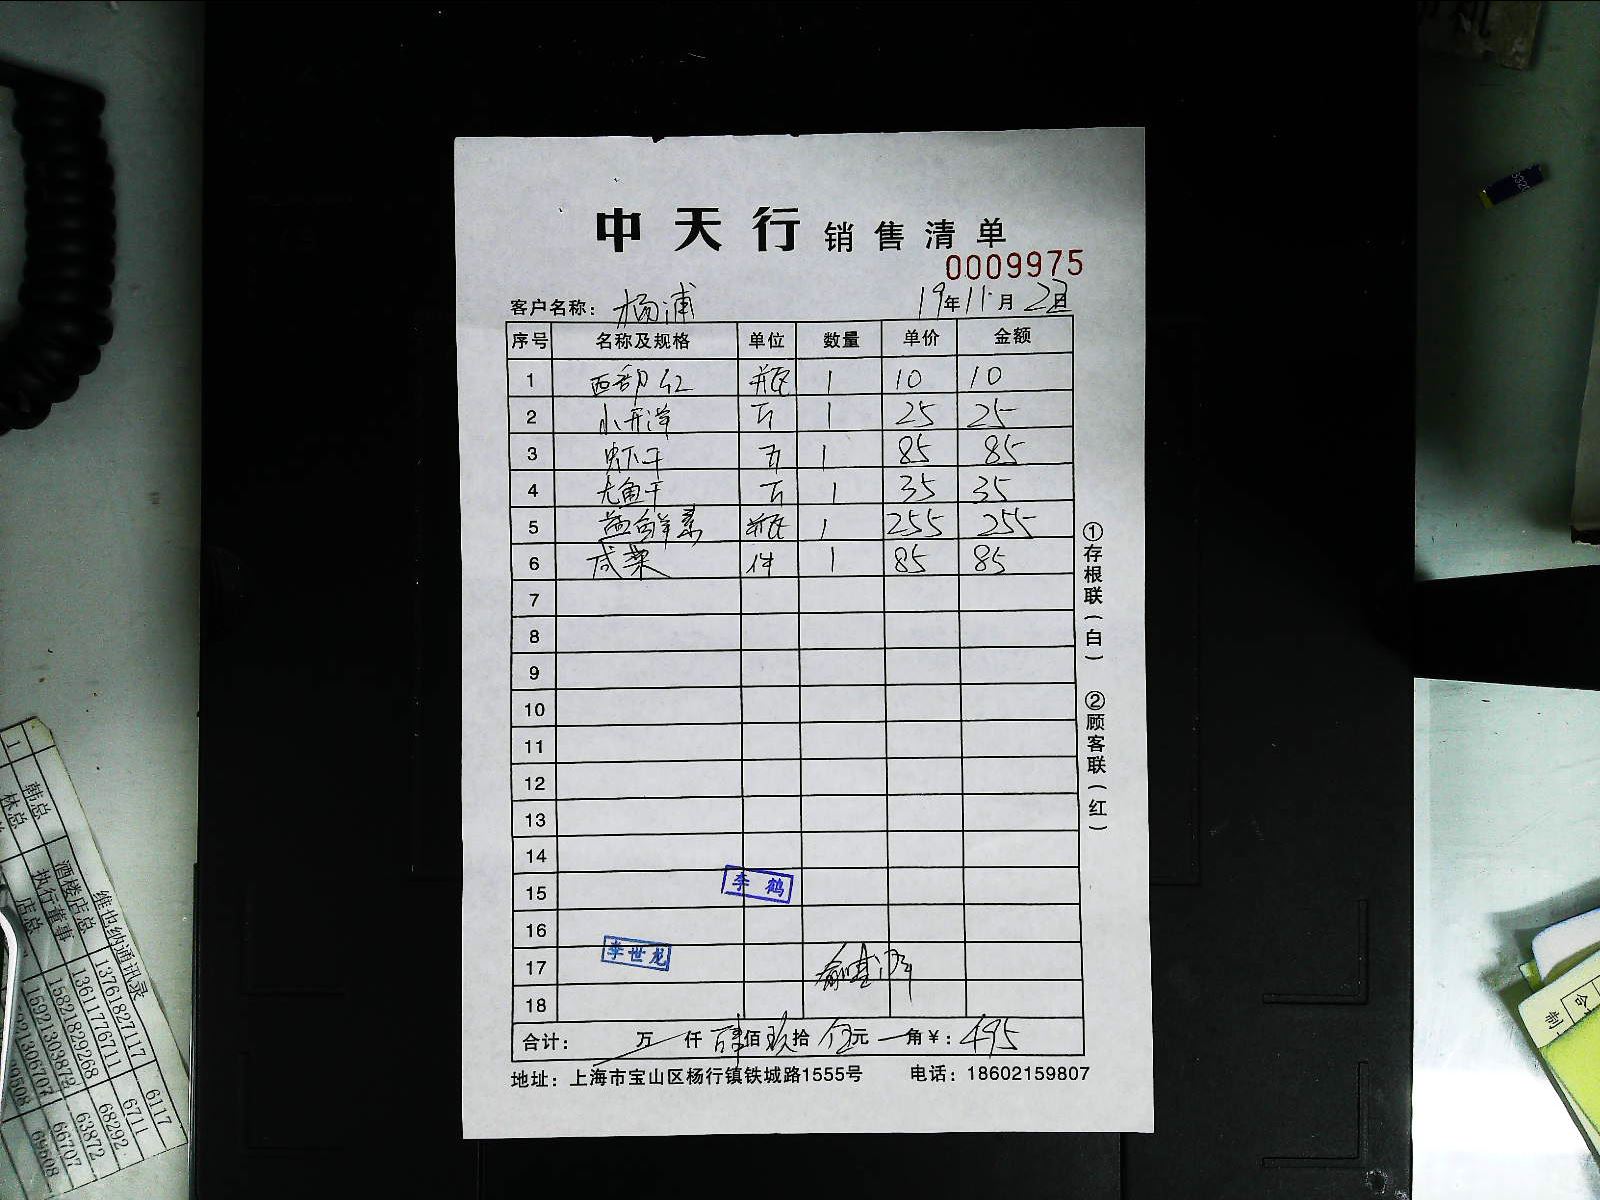 中天行 销售清单
0009975
客户名称: 杨浦 19年11月23日
序号 名称及规格 单位 数量 单价 金额
1 西部红 瓶 1 10 10
2 小开洋 斤 1 25 25
3 虾干 斤 1 85 85
4 尤鱼干 斤 1 35 35
5 益鲜素 瓶 1 255 255
6 咸菜 件 1 85 85
7
8
9
10
11
12
13
14
15
16
17
18
李鹤
李世龙
合计: 万 仟 肆佰玖拾伍元 角¥: 495
地址: 上海市宝山区杨行镇铁城路1555号 电话: 18602159807
①存根联(白) ②顾客联(红)
维也纳通讯录
韩总 酒楼店总 13761827117 6117
林总 执行董事 13611776711 6711
店总 15821829268 68292
15921303872 63872
66707
69508
制